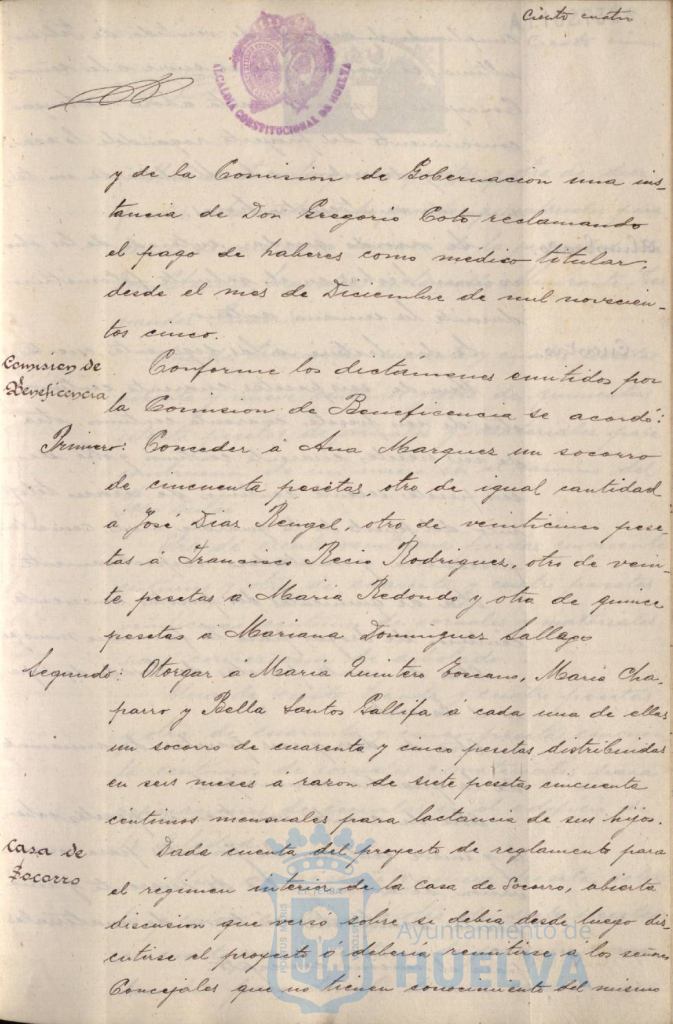 Ciento cuatro
ALCALDIA CONSTITUCIONAL DE HUELVA
y de la Comision de Gobernacion una ins-
tancia de Don Gregorio Coto reclamando
el pago de haberes como médico titular,
desde el mes de Diciembre de mil novecien-
tos cinco.
Comision de
Beneficencia
Conforme los dictamenes emitidos por
la Comision de Beneficencia se acordó:
Primero: Conceder á Ana Marquez un socorro
de cincuenta pesetas, otro de igual cantidad
á José Diaz Rengel, otro de veinticinco pese-
tas á Francisco Recio Rodriguez, otro de vein-
te pesetas á Maria Redondo y otro de quince
pesetas á Mariana Dominguez Sallago
Segundo: Otorgar á Maria Quintero Toscano, Maria Cha-
parro y Bella Santos Gallifa á cada una de ellas
un socorro de cuarenta y cinco pesetas distribuidas
en seis meses á razon de siete pesetas cincuenta
centimos mensuales para lactancia de sus hijos.
Casa de
Socorro
Dada cuenta del proyecto de reglamento para
el régimen interior de la Casa de Socorro, abierta
discusion que versó sobre si debía desde luego dis-
cutirse el proyecto ó debería remitirse á los señores
Concejales que no tienen conocimiento del mismo
Ayuntamiento de
HUELVA